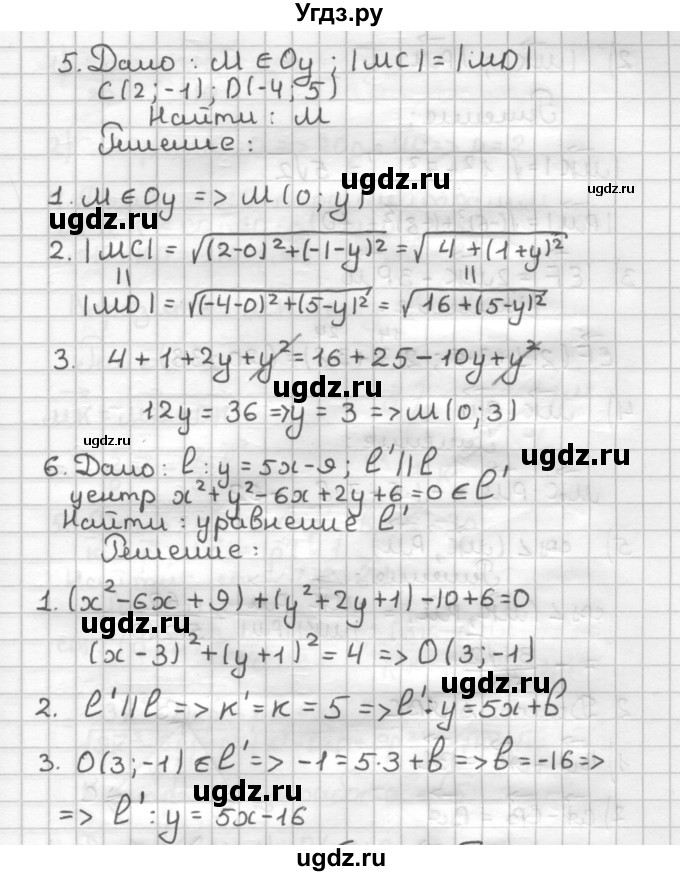 Угдз.ру
5. Дано : M ∈ Oy ; |MC| = |MD|
C(2 ; -1) ; D(-4 ; 5)
Найти : M
Решение :
1. M ∈ Oy => M(0 ; y)
ugdz.ru
ugdz.ru
ugdz.ru
2. |MC| = √((2-0)²+(-1-y)²) = √(4+(1+y)²)
||
||
|MD| = √((-4-0)²+(5-y)²) = √(16+(5-y)²)
3. 4+1+2y+y²=16+25-10y+y²
ugdz.ru
12y = 36 => y = 3 => M(0;3)
ugdz.ru
ugdz.ru
6. Дано : l : y = 5x-9 ; l' || l
центр x²+y²-6x+2y+6=0 ∈ l'
Найти : уравнение l'
Решение :
1. (x²-6x+9)+(y²+2y+1)-10+6=0
ugdz.ru
(x-3)²+(y+1)²=4 => O(3;-1)
ugdz.ru
2. l' || l => к' = к = 5 => l' : y = 5x+b
3. O(3;-1) ∈ l' => -1 = 5·3+b => b = -16 =>
ugdz.ru
=> l' : y = 5x-16
ugdz.ru